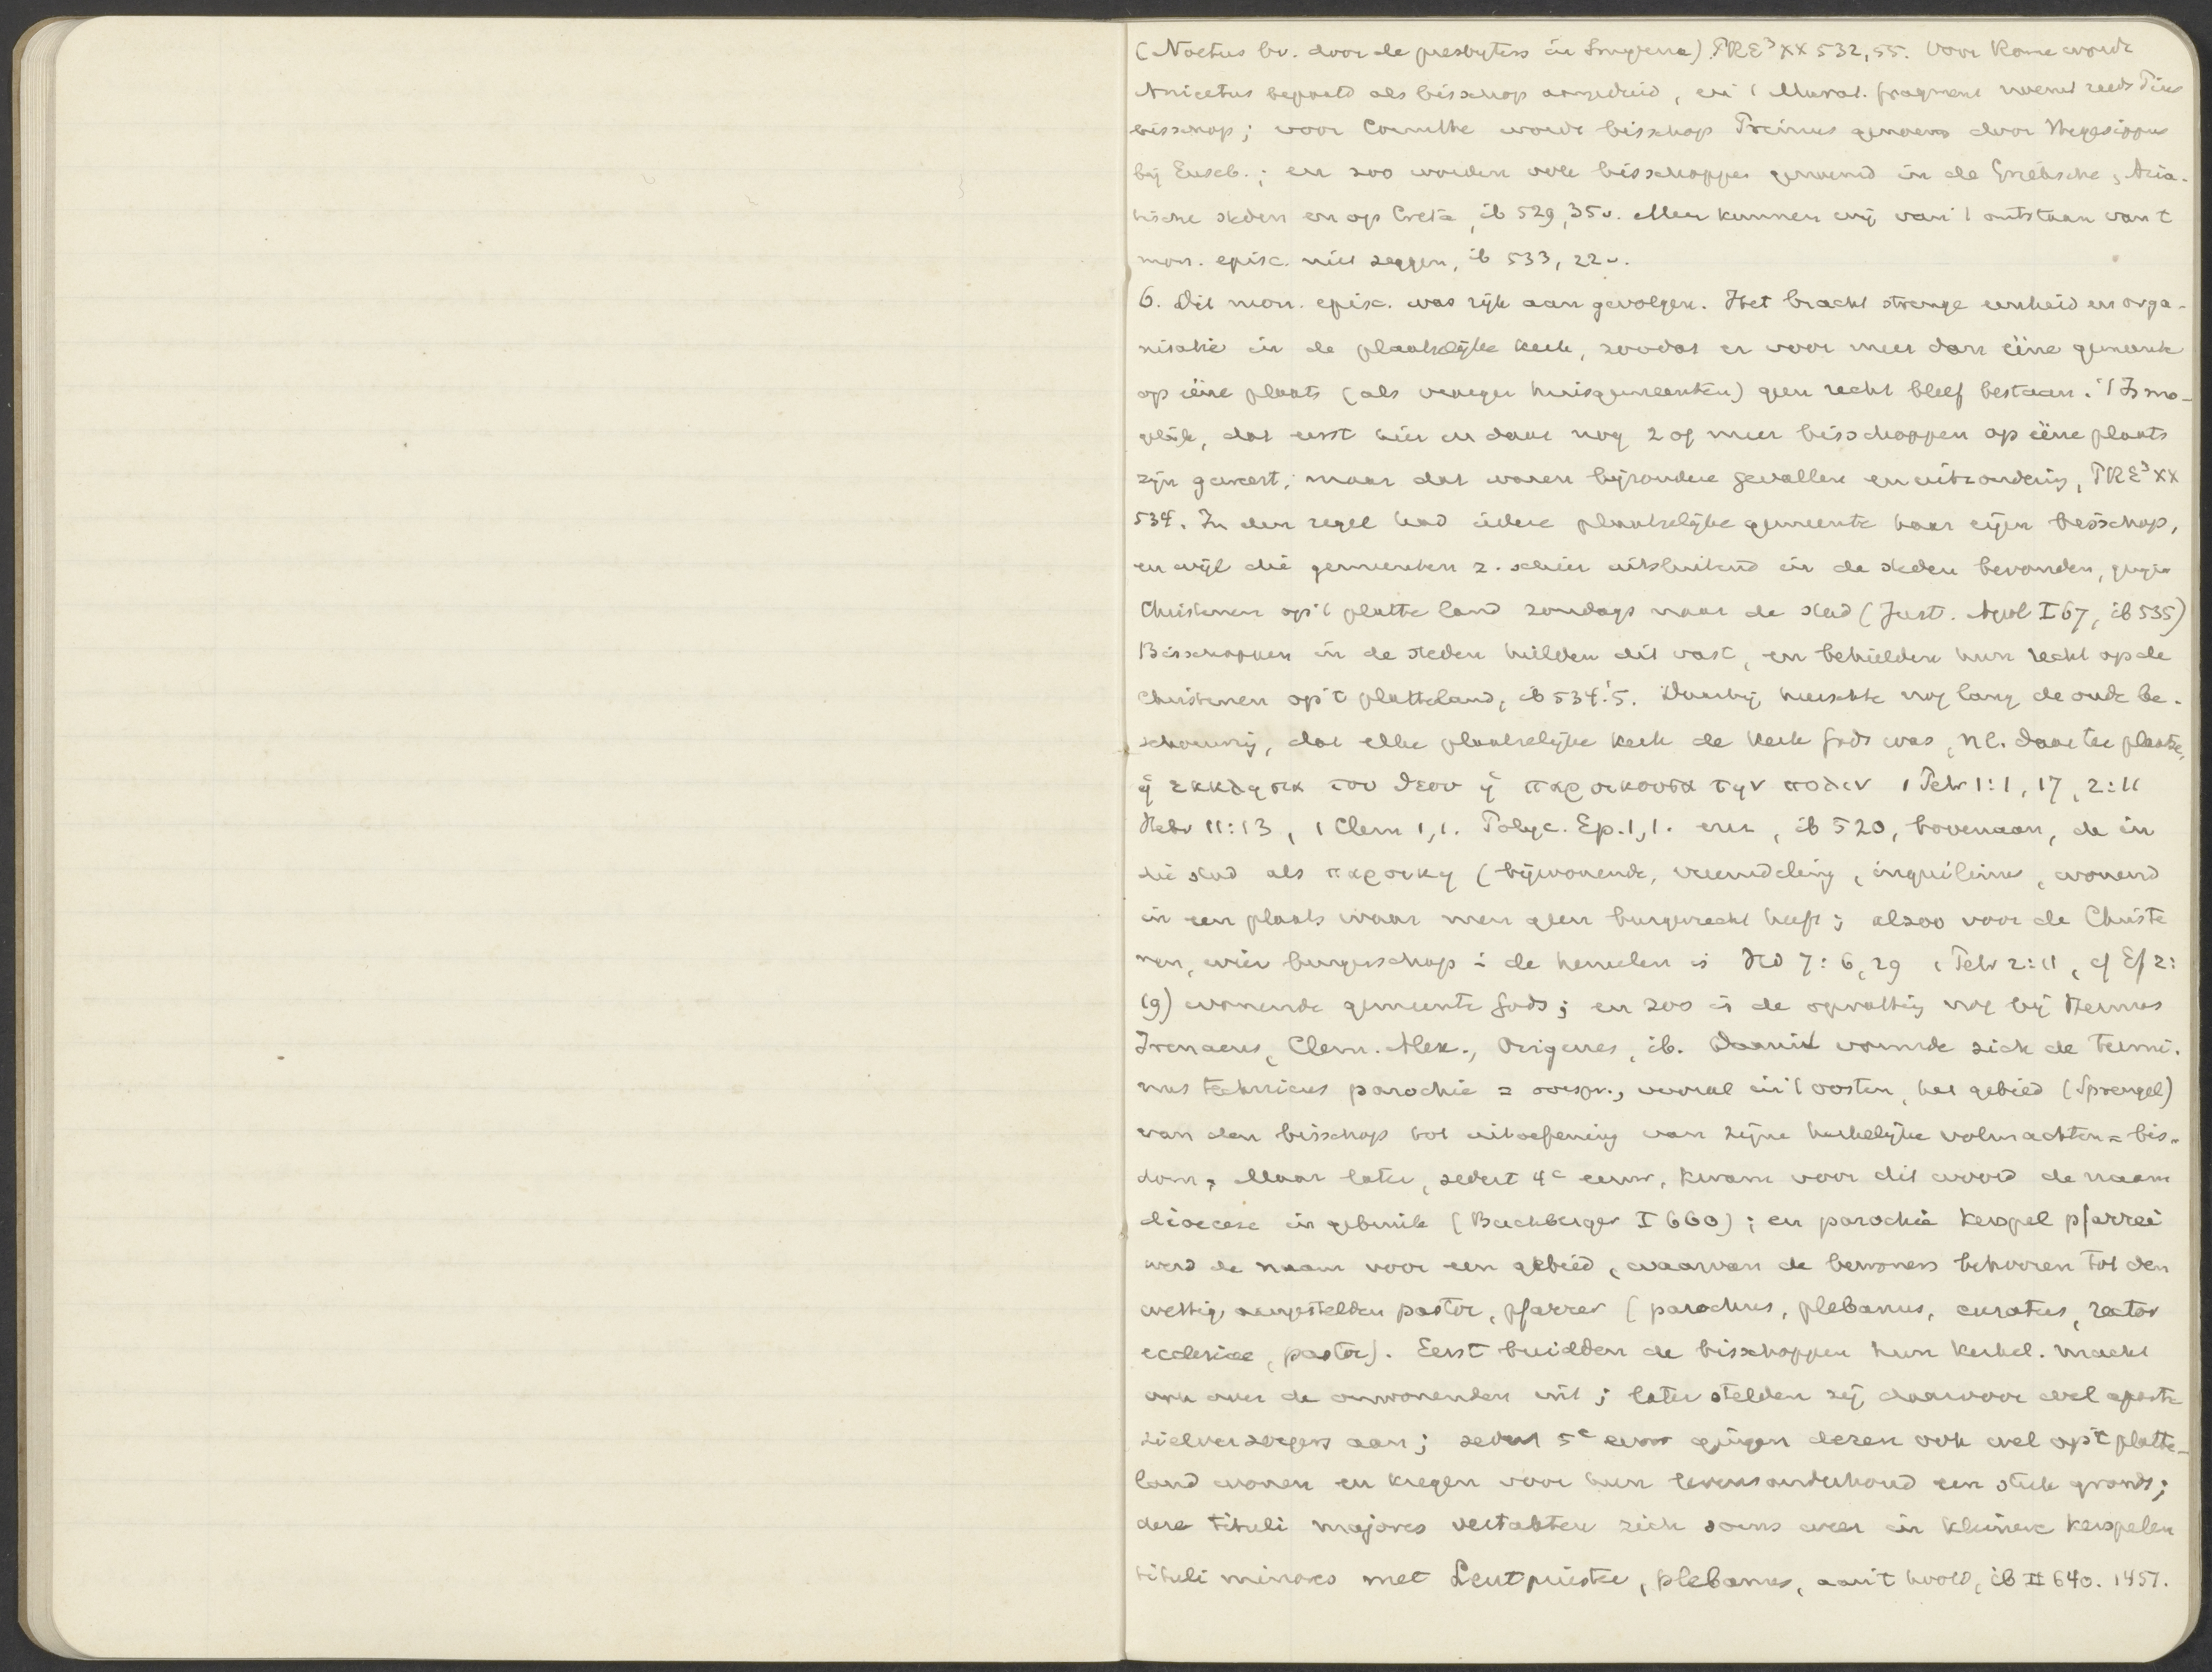 (Noetus bv. door de presbyters in Smyrna) PRE³ XX 532,55. Voor Rome wordt
Anicetus bepaald als bisschop aangeduid, en 't Murat. fragment noemt reeds Pius
bisschop; voor Corinthe wordt bisschop Primus genoemd door Hegesippus
bij Euseb.; en zoo worden vele bisschoppen genoemd in de Grieksche, Azia-
tische steden en op Creta, ib 529,35v. Meer kunnen wij van 't ontstaan van 't
mon. episc. niet zeggen, ib 533, 22v.
6. Dit mon. episc. was rijk aan gevolgen. Het bracht strenge eenheid en orga-
nisatie in de plaatselijke kerk, zoodat er voor meer dan ééne gemeente
op ééne plaats (als vroeger huisgemeenten) geen recht bleef bestaan. 't Is mo-
gelijk, dat eerst hier en daar nog 2 of meer bisschoppen op ééne plaats
zijn geweest; maar dat waren bijzondere gevallen en uitzondering, PRE³ XX
534. In den regel had iedere plaatselijke gemeente haar eigen bisschop,
en wijl die gemeenten z. schier uitsluitend in de steden bevonden, gingen
Christenen op 't platte land zondags naar de stad (Just. Apol I 67, ib 535)
Bisschoppen in de steden hielden dit vast, en behielden hun recht op de
Christenen op 't platteland, ib 534.5. Daarbij heerschte nog lang de oude be-
schouwing, dat elke plaatselijke kerk de kerk Gods was, nl. daar ter plaatse,
ἡ ἐκκλησια του θεου ἡ παροικουσα την πολιν 1 Petr 1:1, 17, 2:11
Hebr 11:13, 1 Clem 1,1. Polyc. Ep. 1,1. enz, ib 520, bovenaan, de in
die stad als παροικη (bijwonende, vreemdeling, inquilinus, wonend
in een plaats waar men geen burgerrecht heeft; alzoo voor de Christe
nen, wier burgerschap i de hemelen is Hd 7:6, 29 1 Petr 2:11, cf Ef 2:
19) wonende gemeente Gods; en zoo is de opvatting nog bij Hermas
Irenaeus, Clem. Alex., Origenes, ib. Daaruit vormde zich de termi-
nus technicus parochie = oorspr., vooral in 't oosten, het gebied (Sprengel)
van den bisschop tot uitoefening van zijne kerkelijke volmachten = bis-
dom; Maar later, sedert 4e eeuw, kwam voor dit woord de naam
dioecese in gebruik (Buchberger I 660); en parochie kerspel pfarrei
werd de naam voor een gebied, waarvan de bewoners behooren tot den
wettig aangestelden pastor, pfarrer (parochus, plebanus, curatus, rector
ecclesiae, pastor). Eerst breidden de bisschoppen hun kerkel. macht
ook over de omwonenden uit; later stelden zij daarvoor wel aparte
zielverzorgers aan; sedert 5e eeuw gingen dezen ook wel op 't platte-
land wonen en kregen voor hun levensonderhoud een stuk gronds;
deze tituli majores vertakten zich soms weer in kleinere kerspelen
tituli minores met Leutpriester, plebanus, aan 't hoofd, ib II 640. 1457.